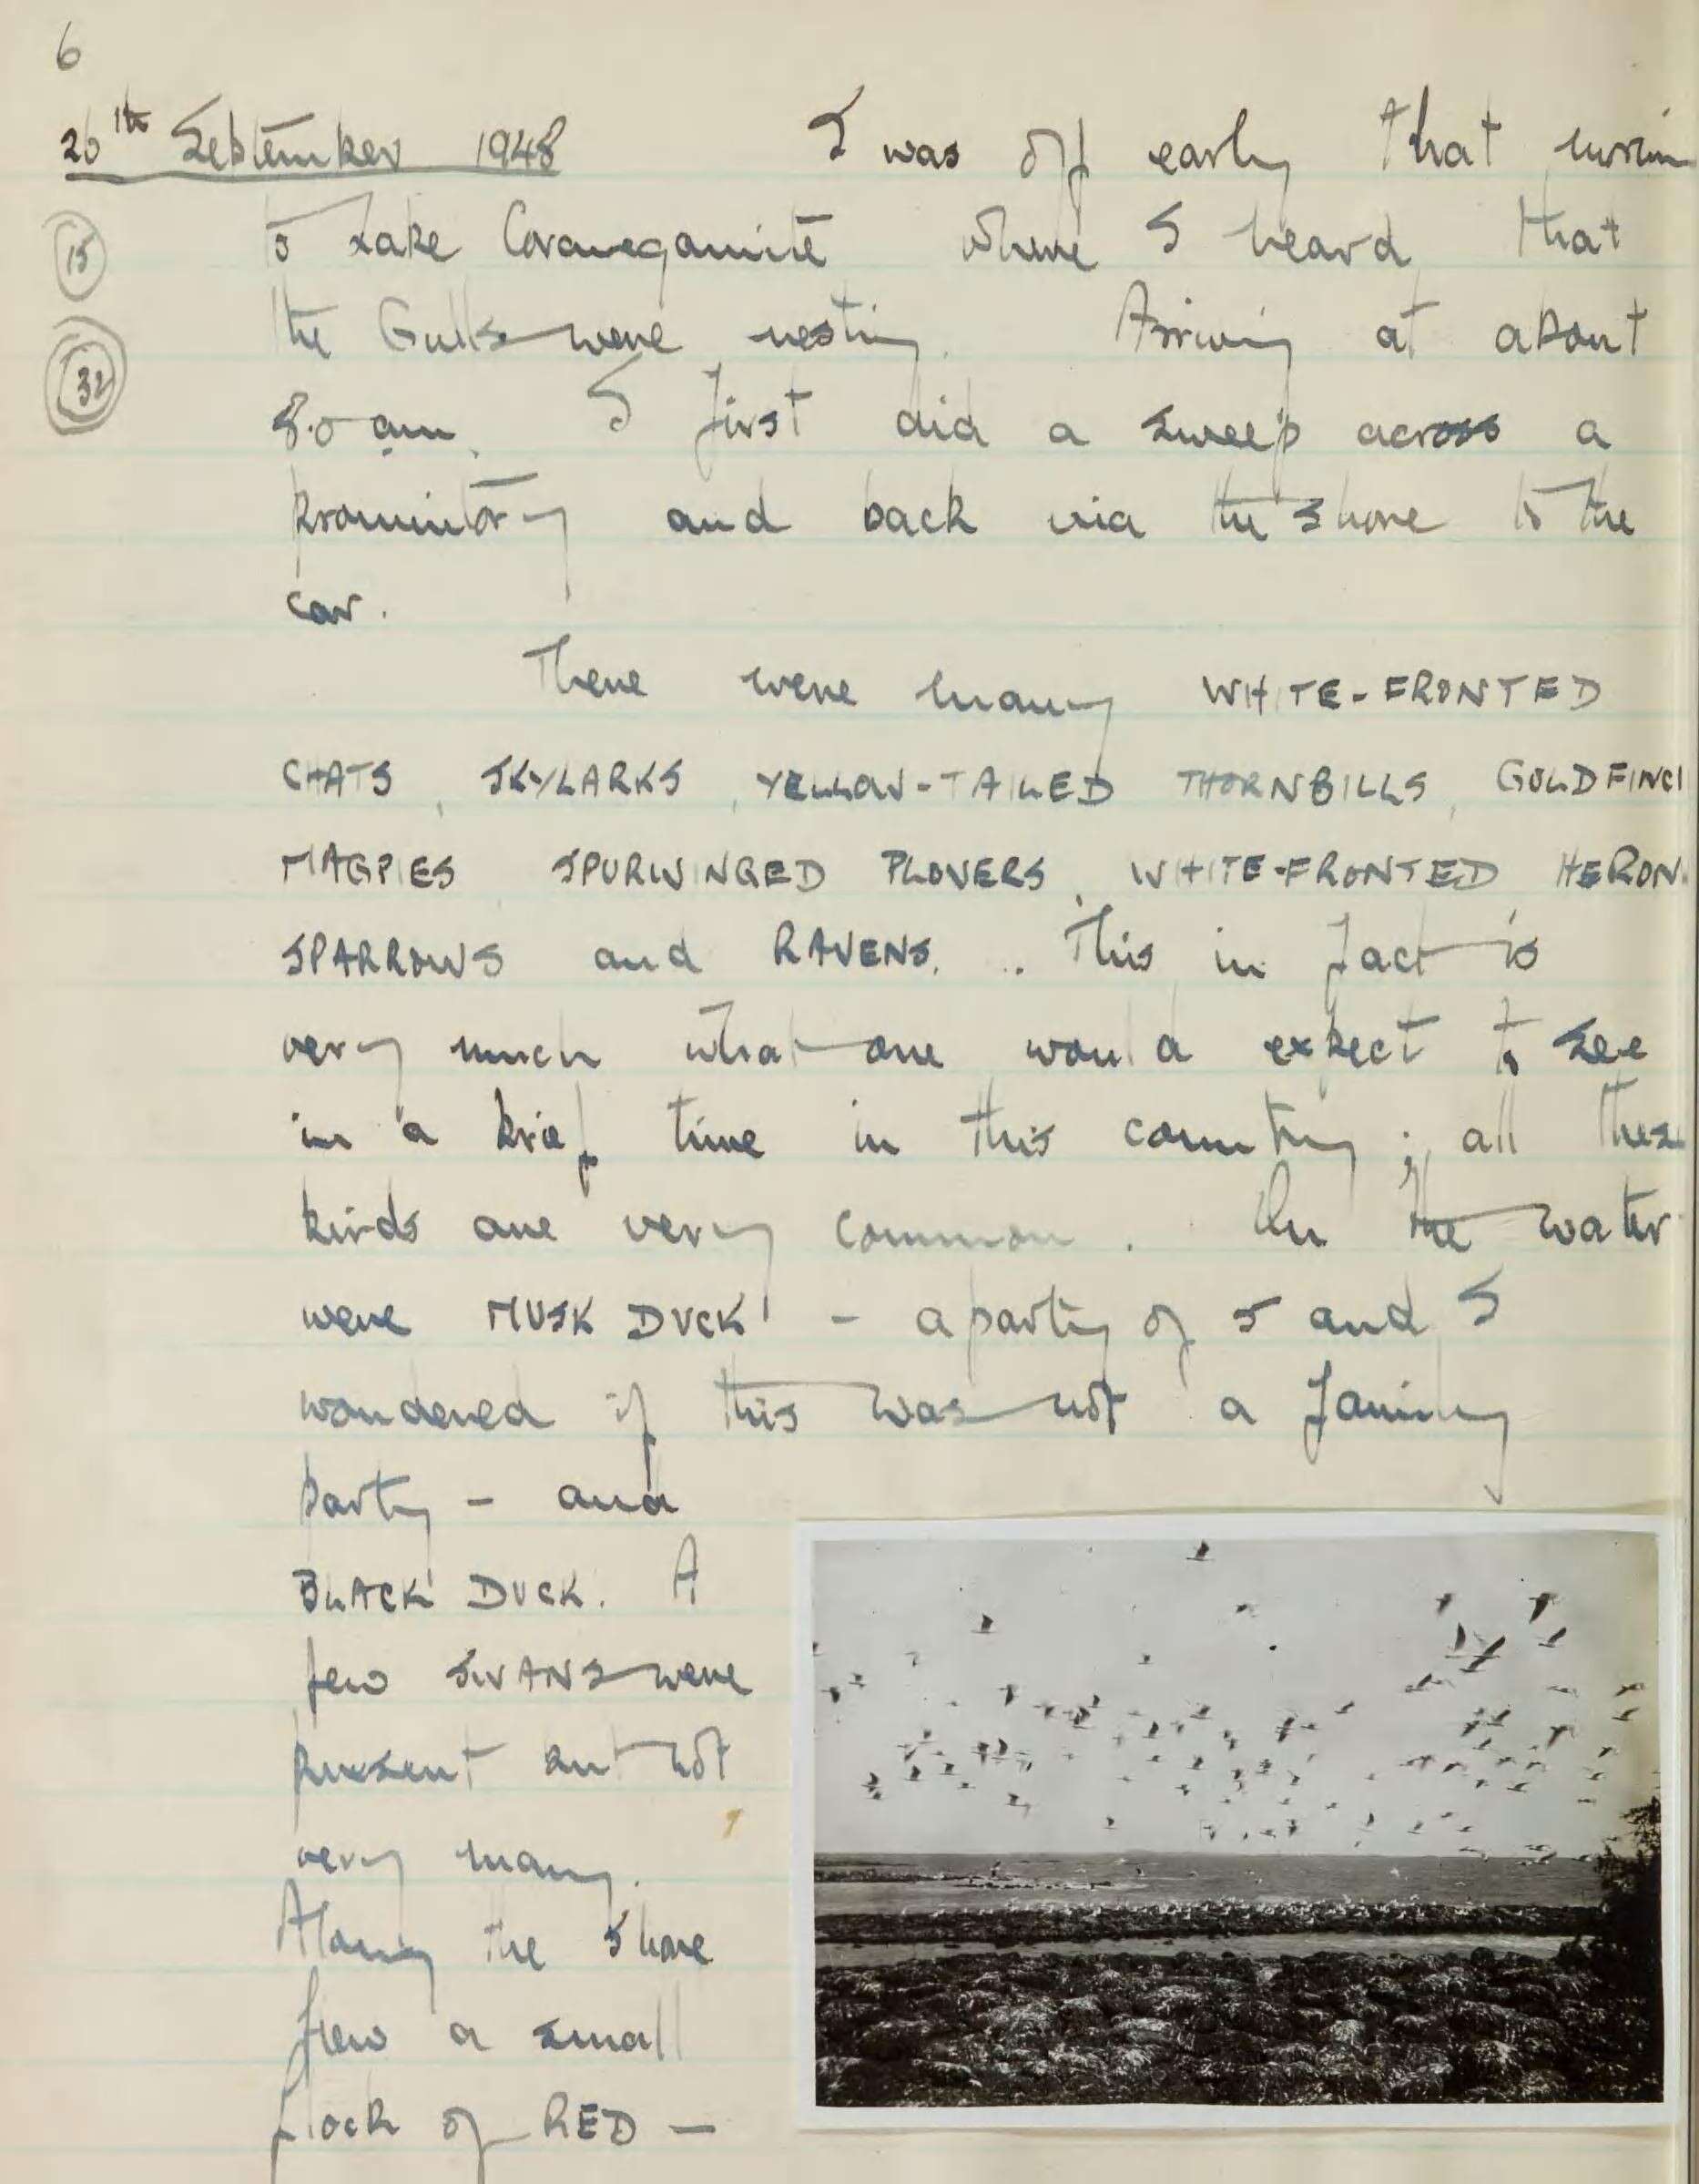 6
26th September 1948 I was off early that mornin
15
to Lake Corangamite where I heard that
the Gulls were nesting. Arriving at about
32
8.0 am. I first did a sweep across a
promintory and back via the shore to the
car.
There were many WHITE-FRONTED
CHATS, SKYLARKS, YELLOW-TAILED THORNBILLS, GOLDFINCH
MAGPIES SPURWINGED PLOVERS, WHITE-FRONTED HERON
SPARROWS and RAVENS. .. This in fact is
very much what one would expect to see
in a brief time in this country; all these
birds are very common. On the water
were MUSK DUCK - a party of 5 and I
wondered if this was not a family
party - and
BLACK DUCK. A
few SWANS were
present but not
very many.
Along the shore
flew a small
flock of RED -